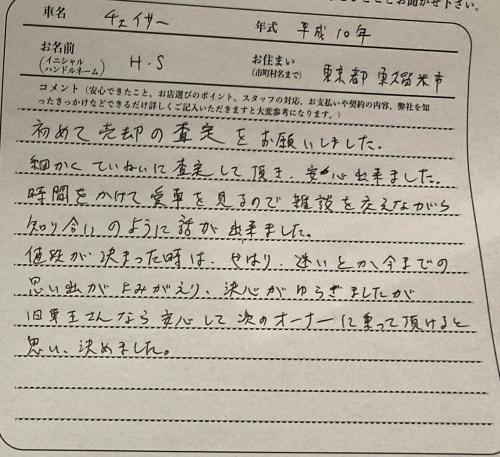 お聞かせ下さい。
車名 チェイサー 年式 平成10年
お名前 (イニシャル ハンドルネーム) H.S お住まい (市町村名まで) 東京都 東久留米市
コメント(安心できたこと、お店選びのポイント、スタッフの対応、お支払いや契約の内容、弊社を知
ったきっかけなどできるだけ詳しくご記入いただきますと大変参考になります。)
初めて売却の査定をお願いしました。
細かくていねいに査定して頂き、安心出来ました。
時間をかけて愛車を見るので雑談を交えながら
知り合いのように話が出来ました。
値段が決まった時は、やはり、迷いとか、今までの
思い出がよみがえり、決心がゆらぎましたが
旧車王さんなら安心して次のオーナーに乗って頂けると
思い、決めました。